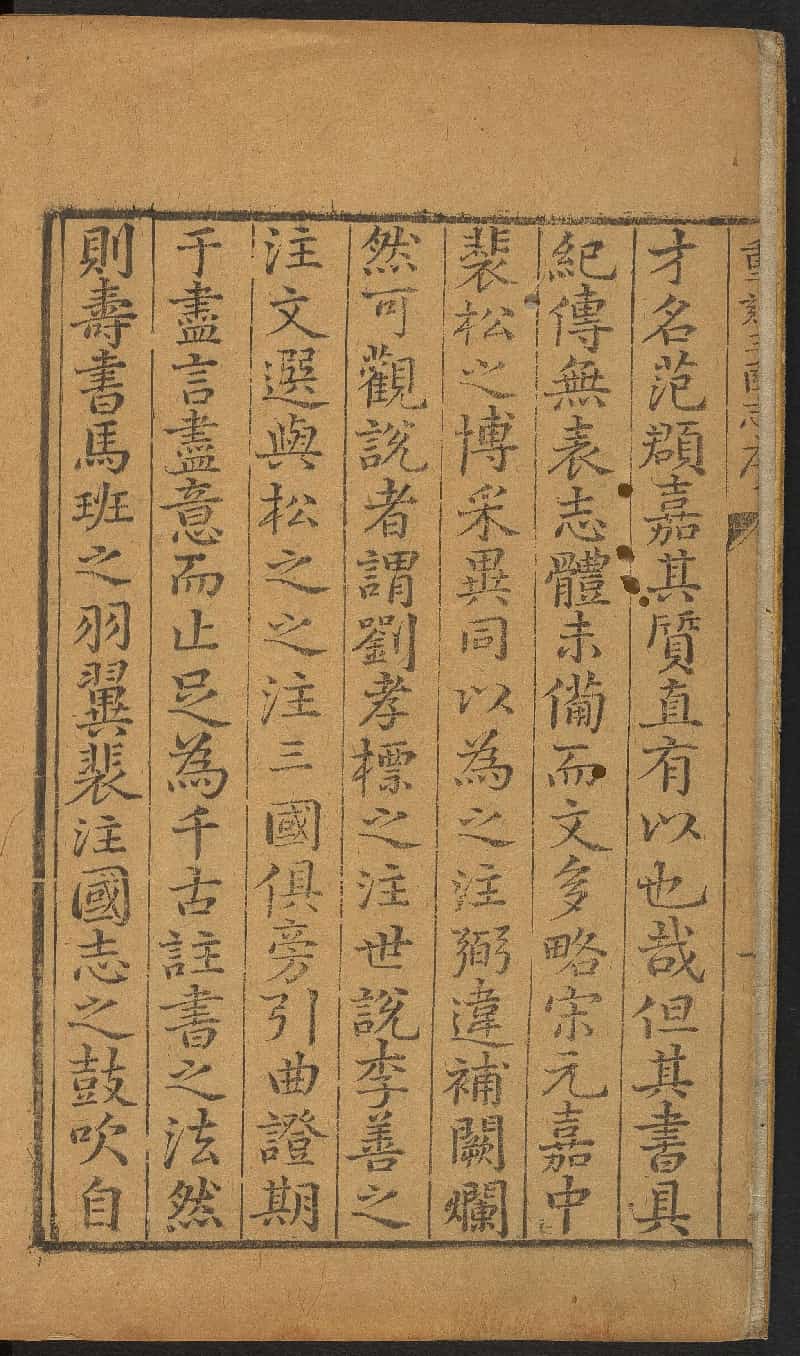 重刻三國志序
才名范頵嘉其質直有以也哉但其書具
紀傳無表志體未備而文多略宋元嘉中
裴松之博采異同以為之注弼違補闕爛
然可觀說者謂劉孝標之注世說李善之
注文選與松之之注三國俱旁引曲證期
于盡言盡意而止足為千古註書之法然
則壽書馬班之羽翼裴注國志之鼓吹自